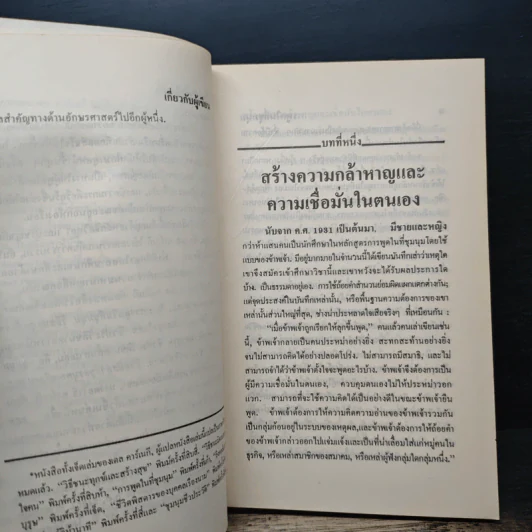 เกี่ยวกับผู้เขียน
สำคัญทางด้านอักษรศาสตร์ไปอีกผู้หนึ่ง.
*หนังสือทั้งเจ็ดเล่มของเดล คาร์เนกี, ผู้แปลหนังสือเล่มนี้
หมดแล้ว. "วิธีชนะทุกข์และสร้างสุข" พิมพ์ครั้งที่สี่.
ใจคน" พิมพ์ครั้งที่สิบห้า, "การพูดในที่ชุมนุม" พิมพ์ครั้งที่ห้า,
บุรุษ" พิมพ์ครั้งที่เจ็ด, "ชีวิตพิสดารของบุคคลเรืองนาม"
พิมพ์ครั้งที่สี่และ "ชุมนุมชีวประวัติ"
บทที่หนึ่ง
สร้างความกล้าหาญและ
ความเชื่อมั่นในตนเอง
นับจาก ค.ศ. 1931 เป็นต้นมา, มีชายและหญิง
กว่าห้าแสนคนเป็นนักศึกษาในหลักสูตรการพูดในที่ชุมนุมโดยใช้
แบบของข้าพเจ้า. มีอยู่มากมายในจำนวนนี้ได้เขียนบันทึกเล่าว่าเหตุใด
เขาจึงสมัครเข้าศึกษาวิชานี้และเขาหวังจะได้รับผลประการใด
บ้าง. เป็นธรรมดาอยู่เอง. การใช้ถ้อยคำสำนวนย่อมผิดแผกแตกต่างกัน;
แต่จุดประสงค์ในบันทึกเหล่านั้น, หรือพื้นฐานความต้องการของเขา
เหล่านั้นส่วนใหญ่ที่สุด, ช่างน่าประหลาดใจเสียจริงๆ ที่เหมือนกัน :
"เมื่อข้าพเจ้าถูกเรียกให้ลุกขึ้นพูด," คนแล้วคนเล่าเขียนเช่น
นี้, ข้าพเจ้ากลายเป็นคนประหม่าอย่างยิ่ง สะทกสะท้านอย่างยิ่ง
จนไม่สามารถคิดได้อย่างปลอดโปร่ง. ไม่สามารถมีสมาธิ, และไม่
สามารถจำได้ว่าข้าพเจ้าตั้งใจจะพูดอะไรบ้าง. ข้าพเจ้าจึงต้องการเป็น
ผู้มีความเชื่อมั่นในตนเอง, ควบคุมตนเองไม่ให้ประหม่าวอก
แวก. สามารถที่จะใช้ความคิดได้เป็นอย่างดีในขณะข้าพเจ้ายืน
พูด. ข้าพเจ้าต้องการให้ความคิดความอ่านของข้าพเจ้ารวมกัน
เป็นกลุ่มก้อนอยู่ในระบบของเหตุผล,และข้าพเจ้าต้องการให้ถ้อยคำ
ของข้าพเจ้ากล่าวออกไปแจ่มแจ้งและเป็นที่น่าเลื่อมใสแก่หมู่คนใน
ธุรกิจ, หรือเหล่าสมาชิกของสมาคม, หรือผู้ฟังกลุ่มใดกลุ่มหนึ่ง.